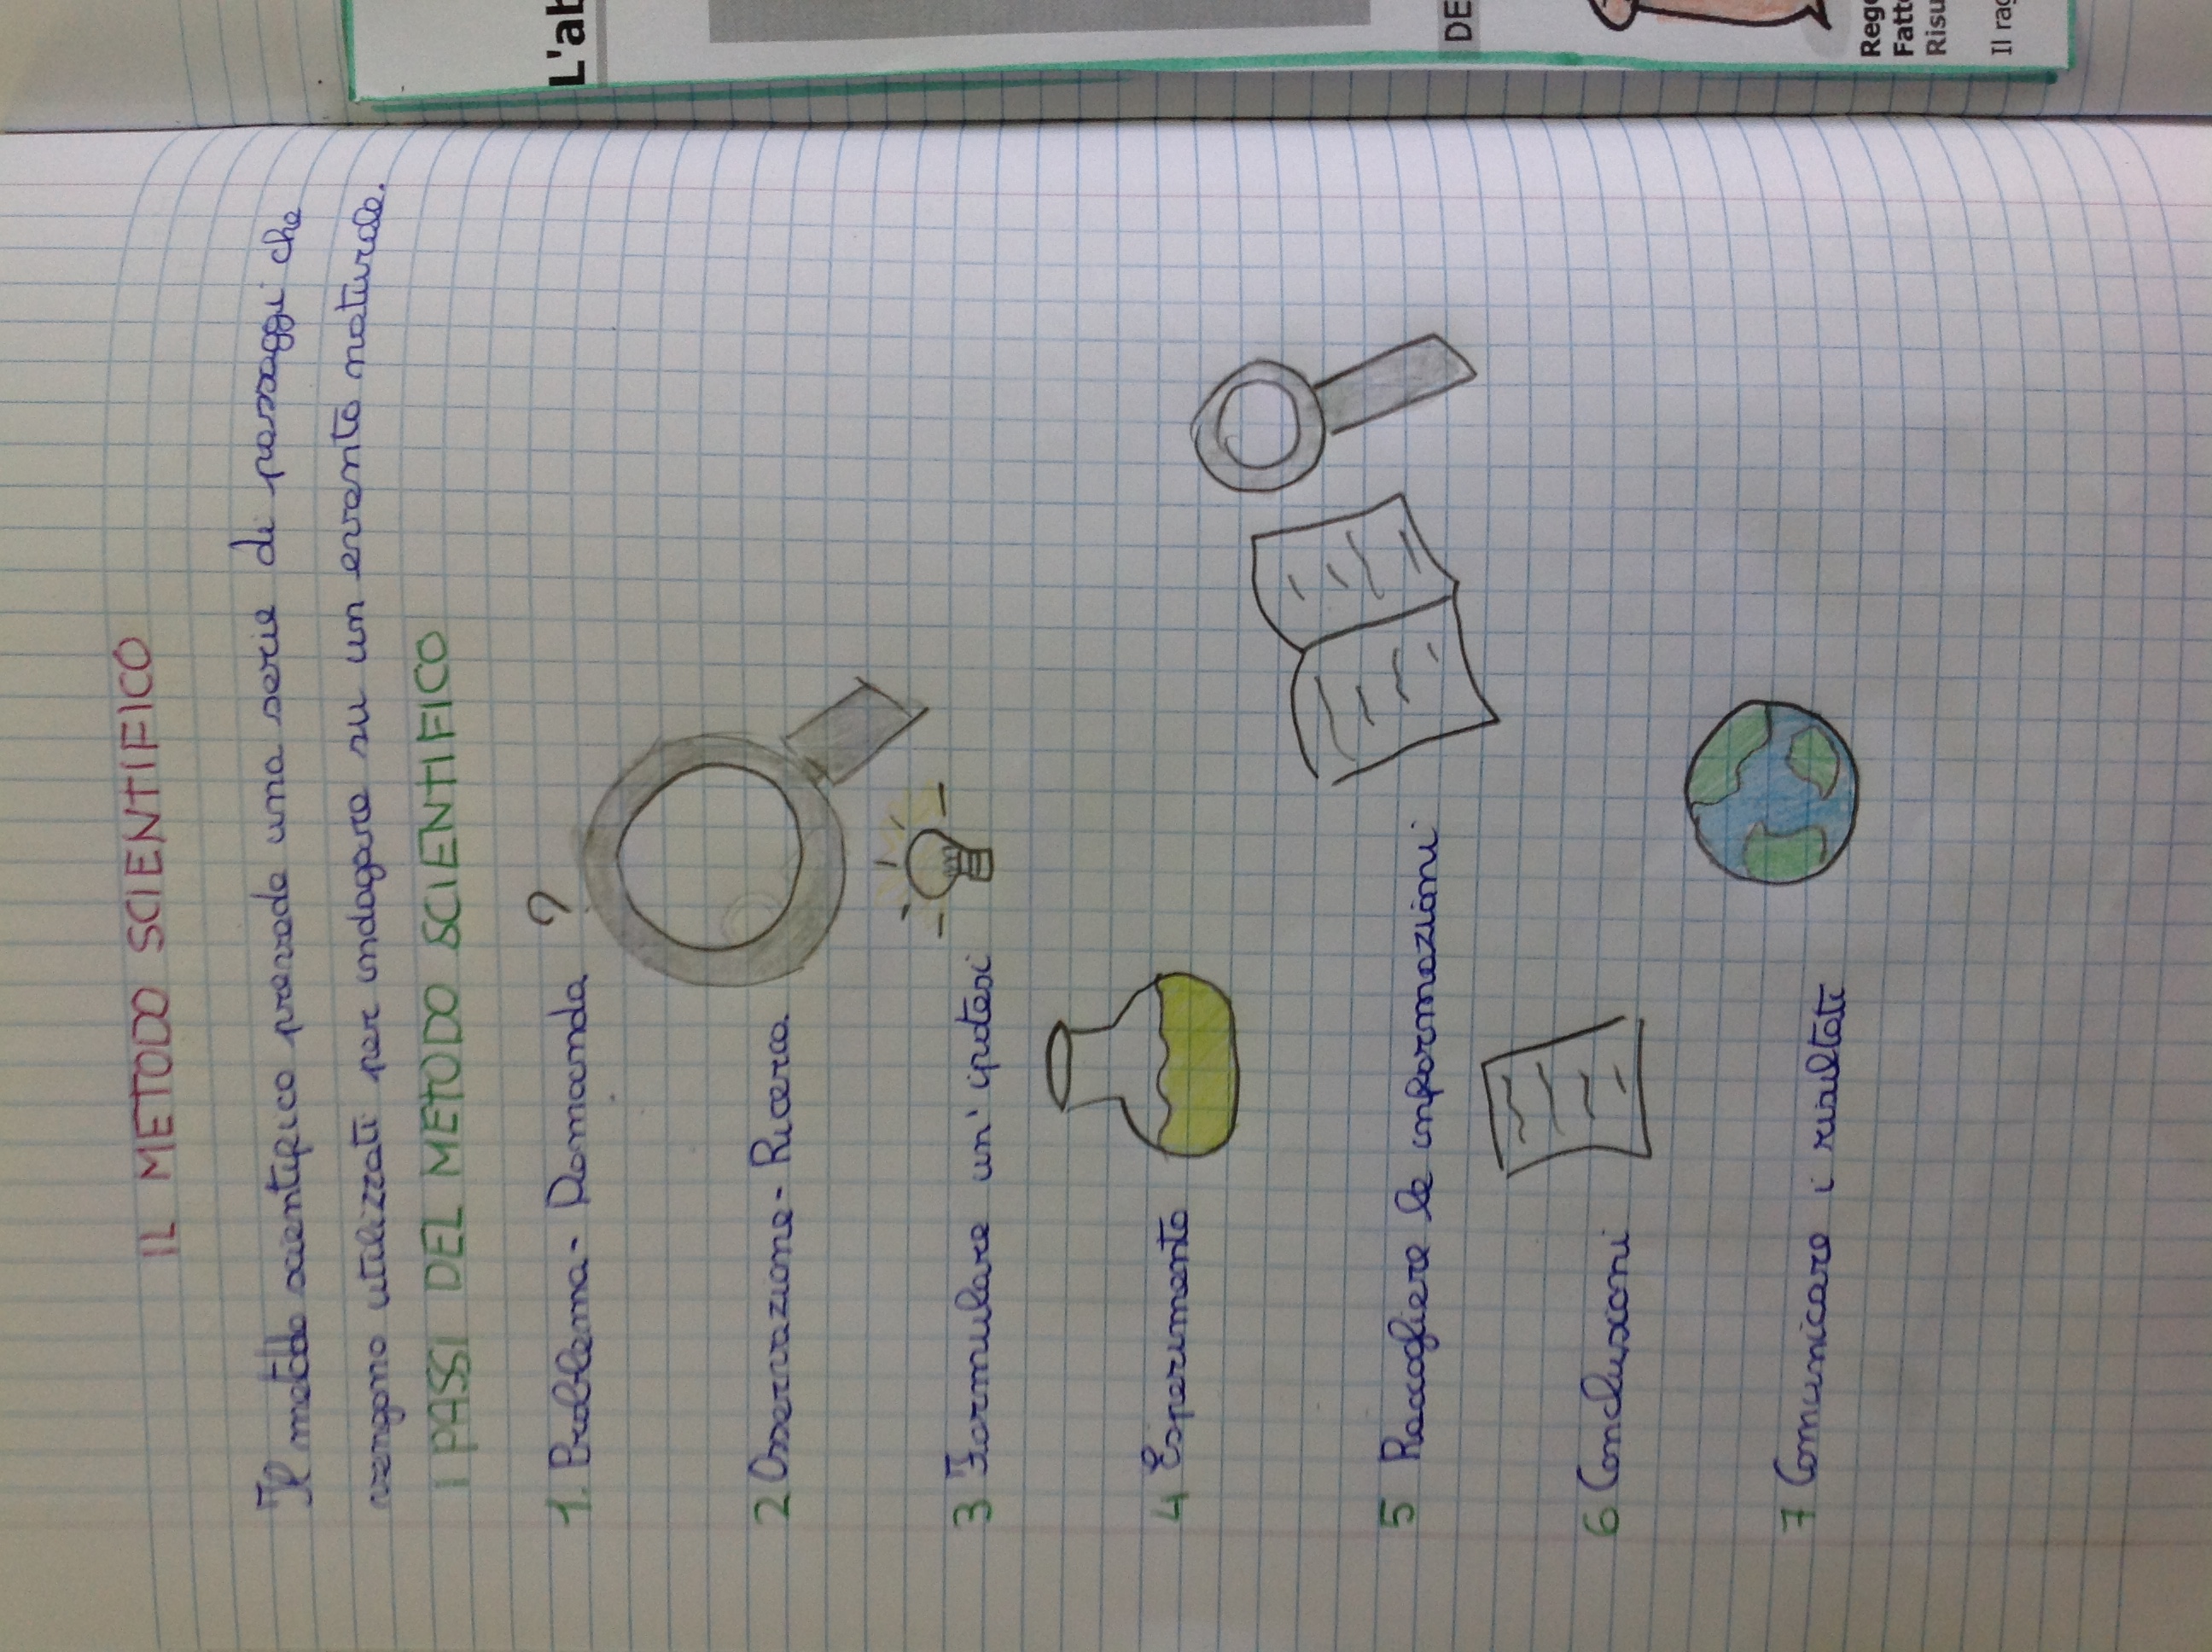 IL METODO SCIENTIFICO
Il metodo scientifico prevede una serie di passaggi che
vengono utilizzati per indagare su un evento naturale.
I PASSI DEL METODO SCIENTIFICO
1. Problema - Domanda ?
2 Osservazione - Ricerca
3 Formulare un' ipotesi
4 Esperimento
5 Raccogliere le informazioni
6 Conclusioni
7 Comunicare i risultati
L'ab
DE
Rego
Fatto
Risu
Il rag